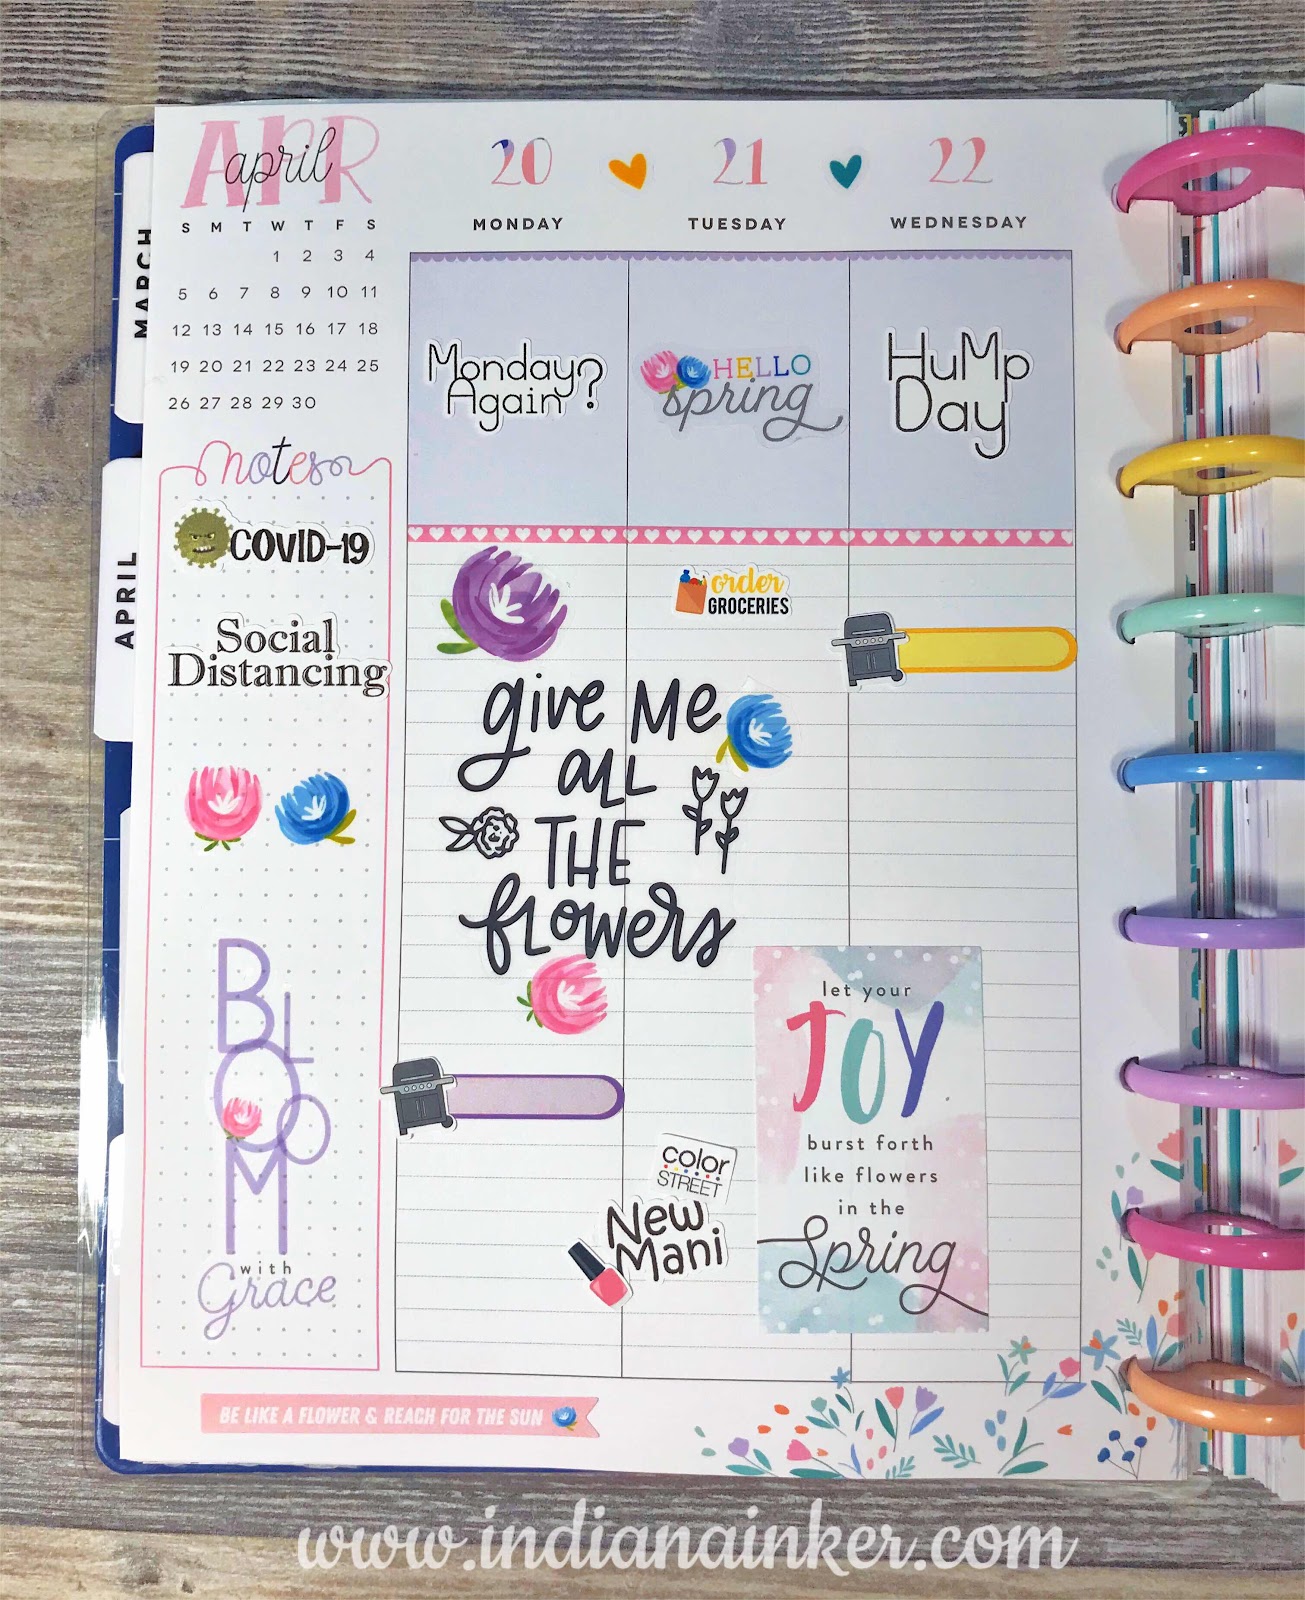 APR
april
S M T W T F S
1 2 3 4
5 6 7 8 9 10 11
12 13 14 15 16 17 18
19 20 21 22 23 24 25
26 27 28 29 30
20
MONDAY
21
TUESDAY
22
WEDNESDAY
MARCH
APRIL
notes
COVID-19
Social
Distancing
BLOOM
with
Grace
Monday
Again?
HELLO
spring
HuMp
Day
order
GROCERIES
give Me
aLL
THE
fLowers
color
STREET
New
Mani
let your
JOY
burst forth
like flowers
in the
Spring
BE LIKE A FLOWER & REACH FOR THE SUN
www.indianainker.com